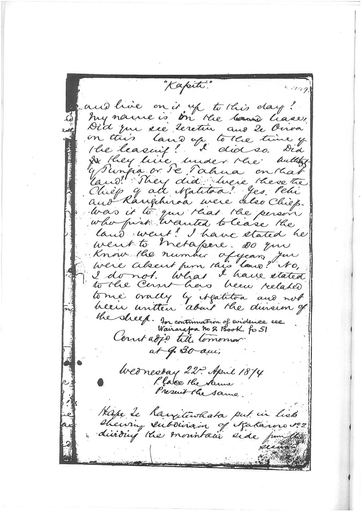 "Kapiti"
and live on it up to this day?
my name is on the lease
Did you see Teretiu and Te Onoa
on this land up to the time of
the leasing? I did so. Did
they live under the authority
of Tunga or Te Tahua on that
land? They did. were these the
Chiefs of all Ngatitoa? Yes. Pehi
and Rangihiroa were also Chiefs.
was it to you that the person
who first wanted to lease the
land went? I have stated he
went to Metapere. Do you
Know the number of years you
were absent from this land? No,
I do not. What I have stated
to the Court has been related
to me orally by Ngatitoa and not
been written about the division of
the sheep. For continuation of evidence see
Wairarapa No 2 Book fo 51
Court adjd till tomorrow
at 9.30 am.
Wednesday 22nd April 1874
Place the same
Present the same.
Hapi Te Rangitewhata put in list
shewing subdivision of Kukutauaki No 2
dividing the mountain side from the